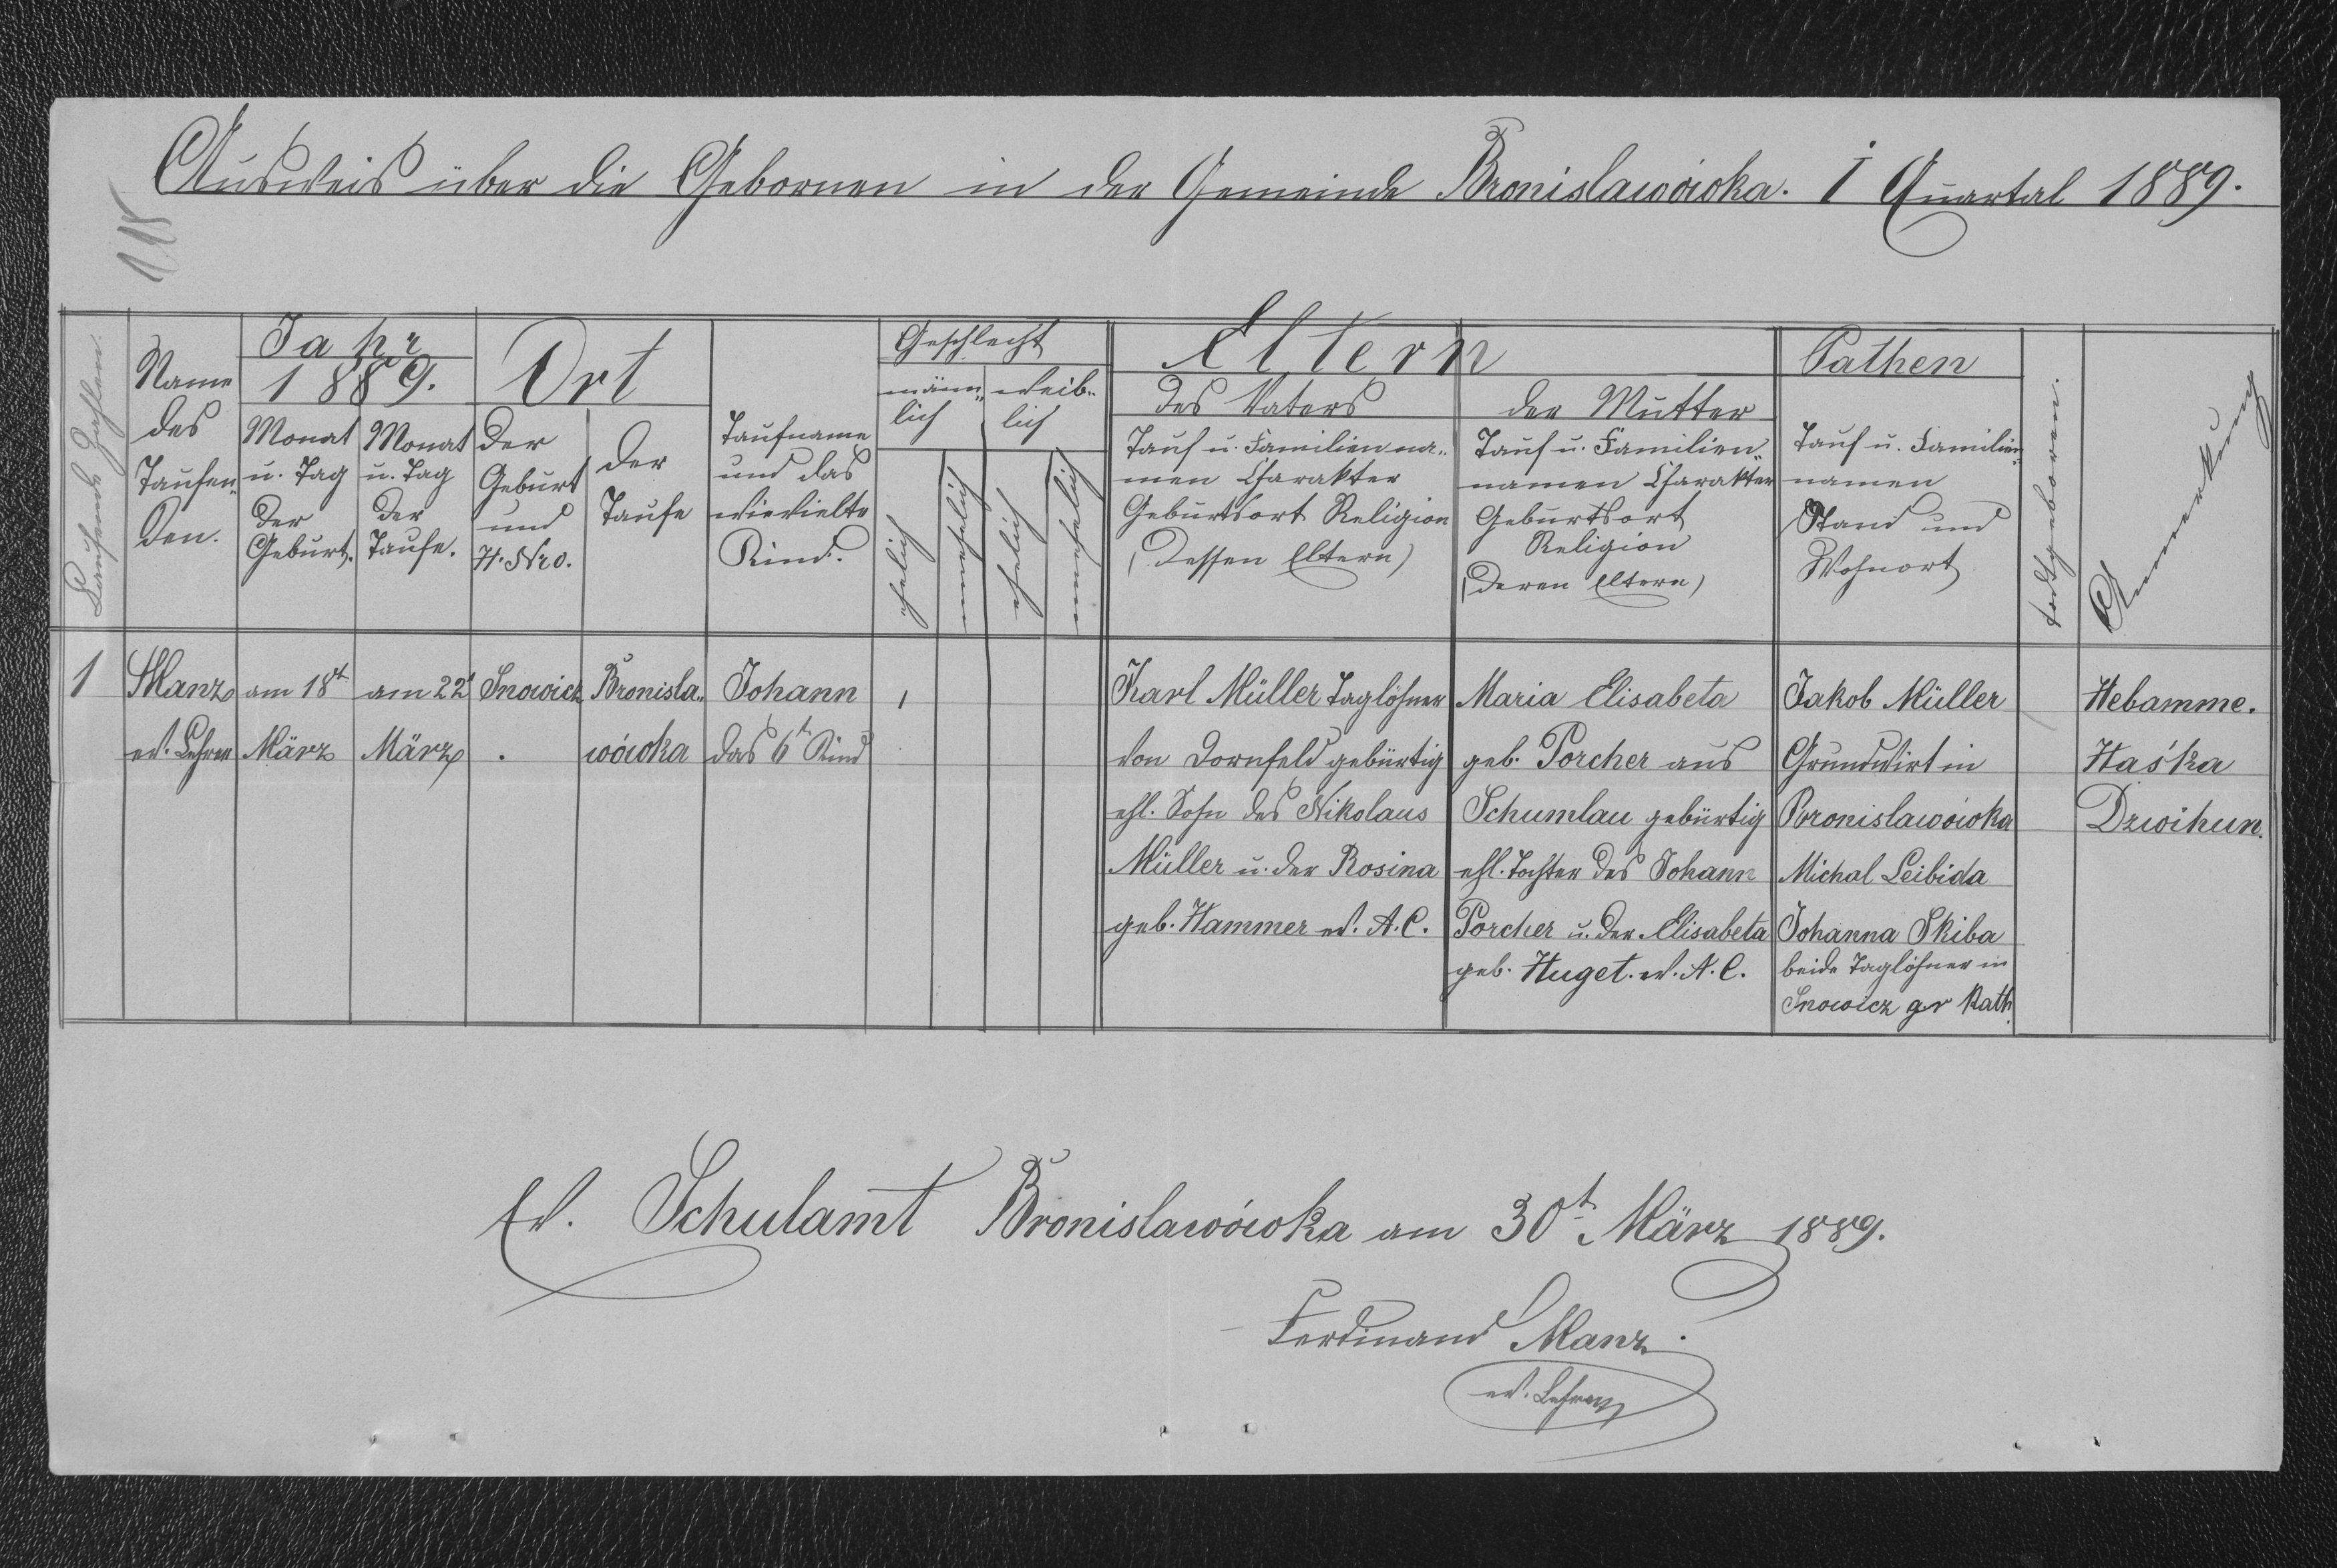 Ausweis über die Gebornen in der Gemeinde Bronislawówka. I Quartal 1889.
118
Laufende Zahlen.
Name
des
Taufen-
den.
Jahr
1889.
Monat
u. Tag
der
Geburt.
Monat
u. Tag
der
Taufe.
Ort
der
Geburt
und
H. Nro.
der
Taufe
Taufname
und das
wievielte
Kind.
Geschlecht
männ-
lich
weib-
lich
ehelich
unehelich
ehelich
unehelich
Eltern
des Vaters
Tauf u. Familienna-
men Charakter
Geburtsort Religion
(Dessen Eltern)
der Mutter
Tauf u. Familien-
namen Charakter
Geburtsort
Religion
(Deren Eltern)
Pathen
Tauf u. Familien-
namen
Stand und
Wohnort
todtgeboren.
Anmerkung
1
Manz
ev. Lehrer
am 18t
März
am 22t
März
Snowicz
.
Bronisla-
wówka
Johann
das 6t Kind
1
Karl Müller Taglöhner
von Dornfeld gebürtig
ehl. Sohn des Nikolaus
Müller u. der Rosina
geb. Hammer ev. A. C.
Maria Elisabeta
geb. Porcher aus
Schumlau gebürtig
ehl. Tochter des Johann
Porcher u. der Elisabeta
geb. Huget. ev. A. C.
Jakob Müller
Grundwirt in
Bronislawówka
Michal Leibida
Johanna Skiba
beide Taglöhner in
Snowicz gr Kath.
Hebamme.
Haśka
Dzwihun.
Ev. Schulamt Bronislawówka am 30t März 1889.
Ferdinand Manz.
ev. Lehrer